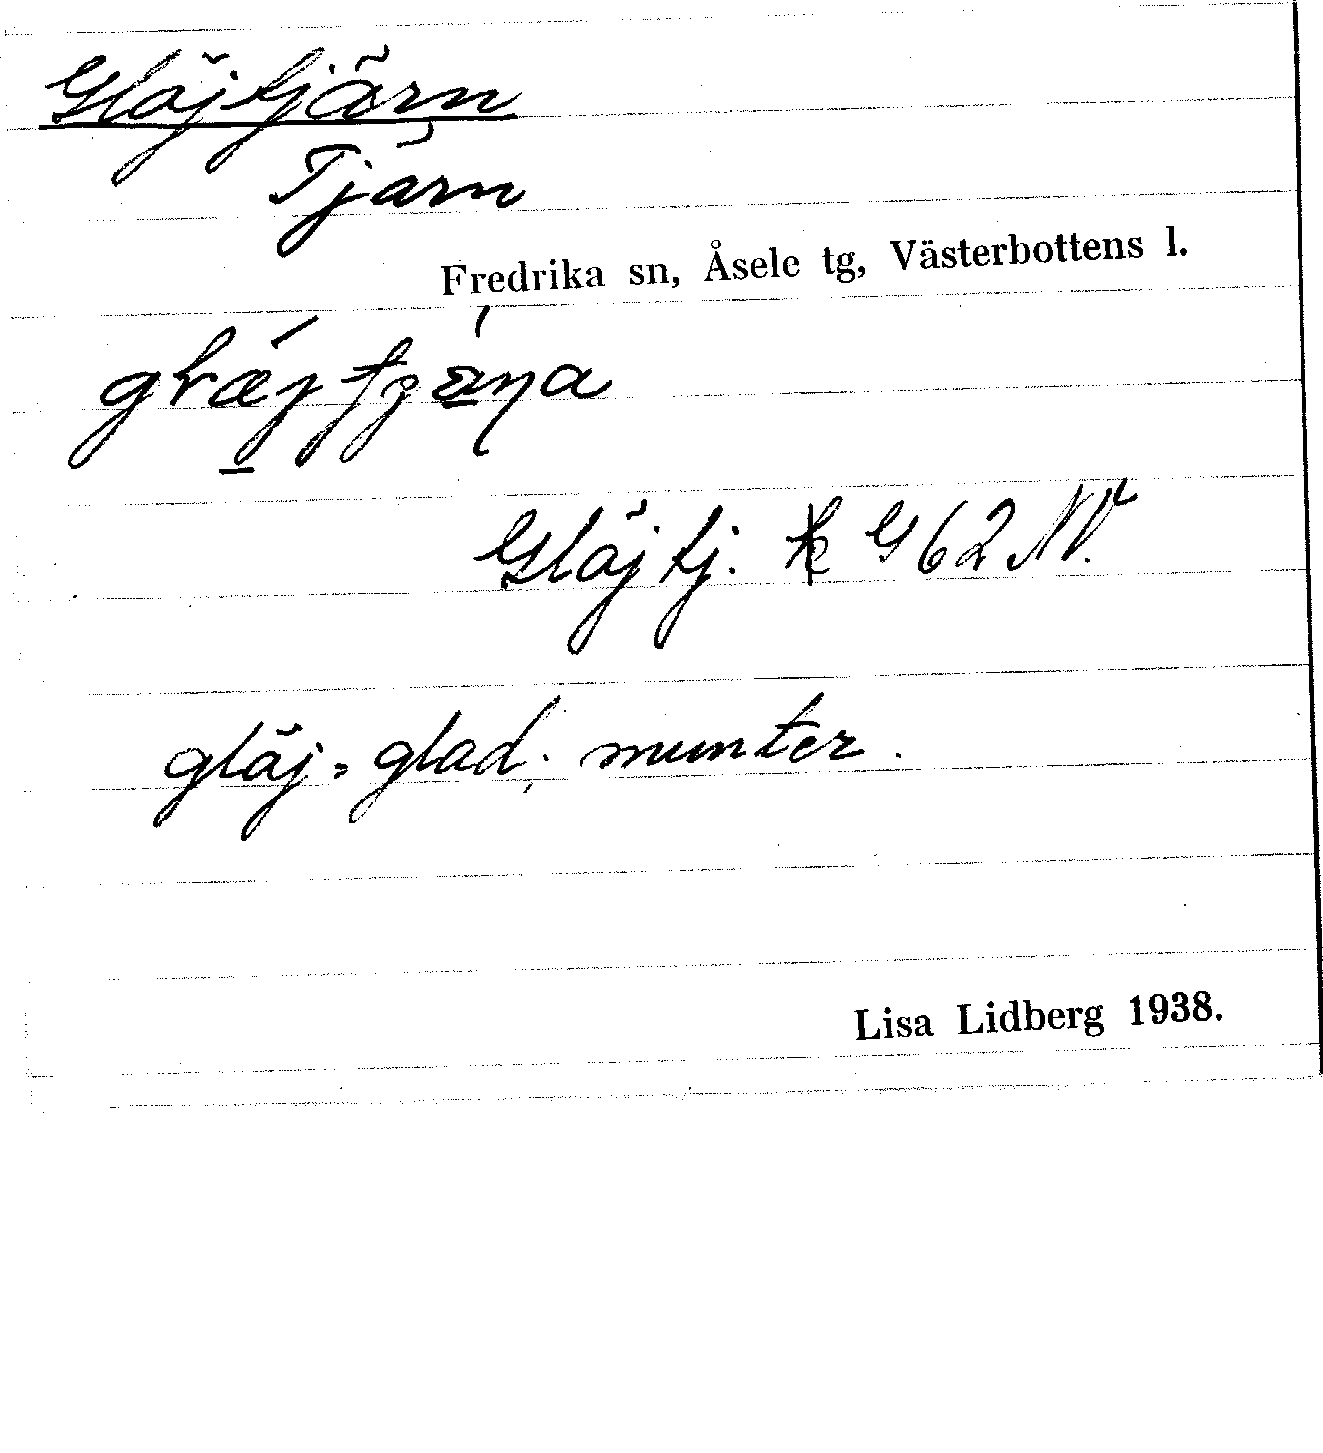 Glöjtjärn
Tjärn
Fredrika sn, Åsele tg, Västerbottens l.
Glöjtj. k G 62 NV.
glöj = glad; munter.
Lisa Lidberg 1938.